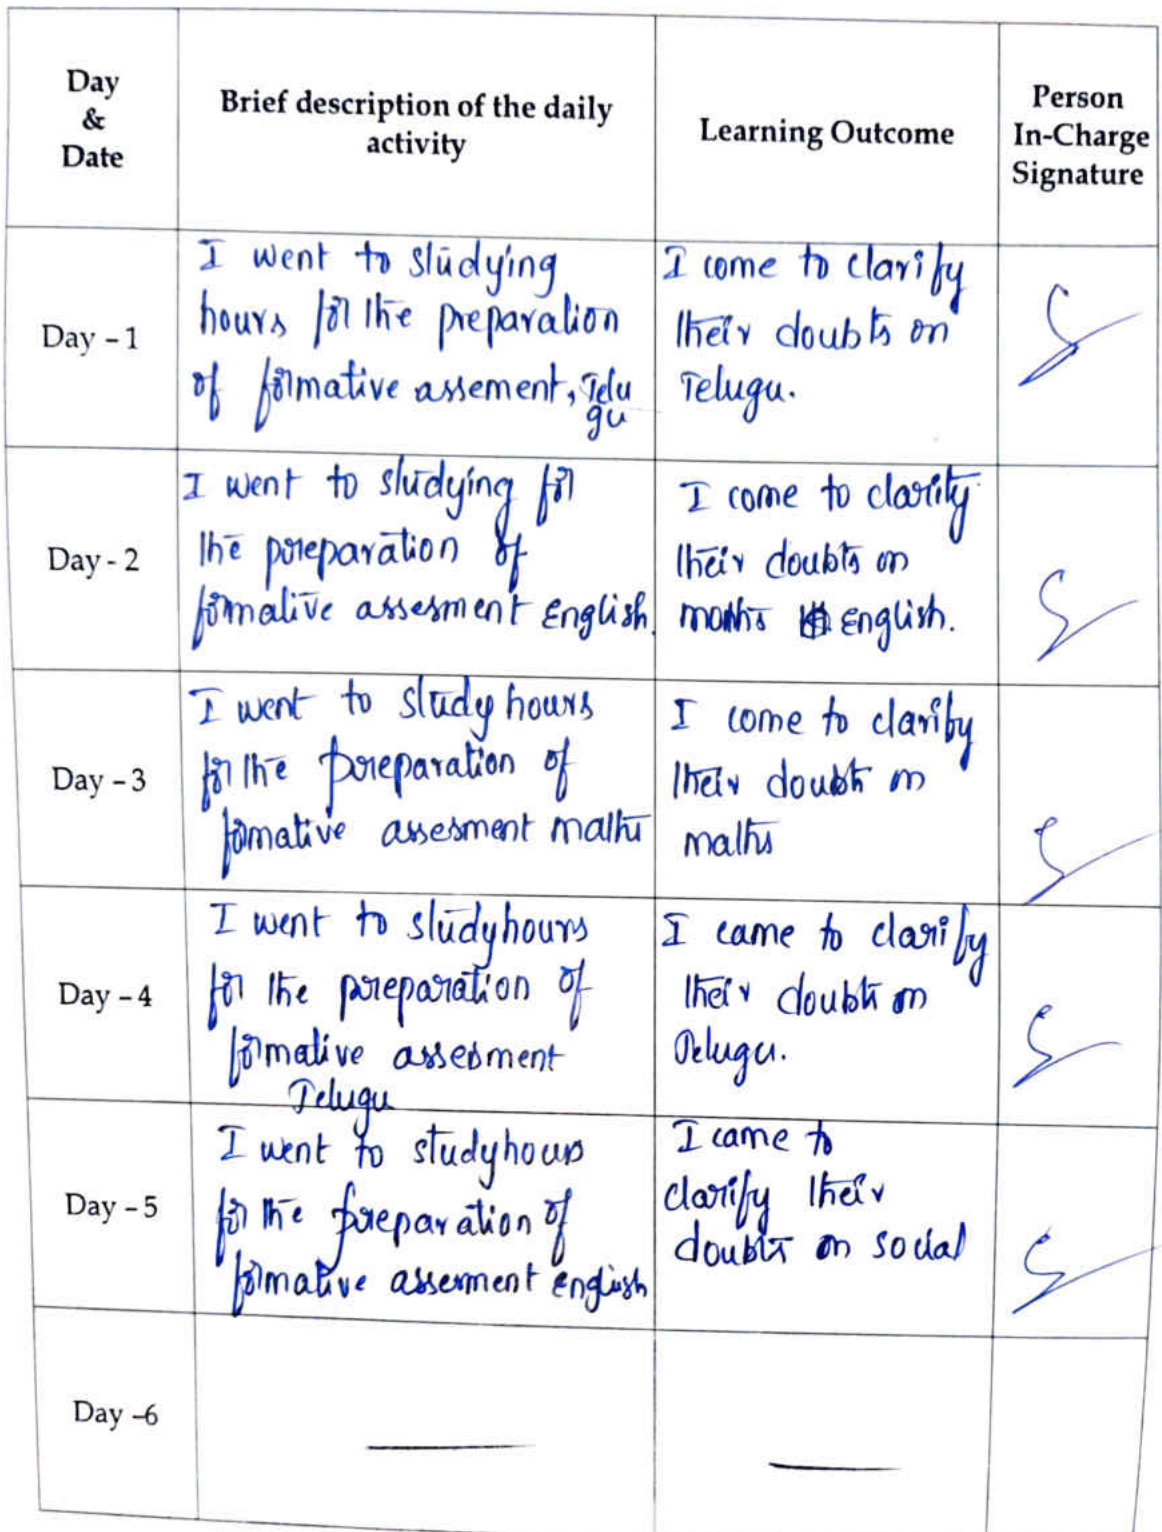 Day
&
Date
Brief description of the daily
activity
Learning Outcome
Person
In-Charge
Signature
Day – 1
I went to studying
hours for the preparation
of formative assement, Telu
gu
I come to clarify
their doubts on
Telugu.
Day - 2
I went to studying for
the preparation of
formative assesment English.
I come to clarity
their doubts on
maths English.
Day – 3
I went to study hours
for the preparation of
formative assesment maths
I come to clarify
their doubts on
maths
Day – 4
I went to studyhours
for the preparation of
formative assesment
Telugu
I came to clarify
their doubts on
Telugu.
Day – 5
I went to studyhours
for the preparation of
formative assesment english
I came to
clarify their
doubts on social
Day –6